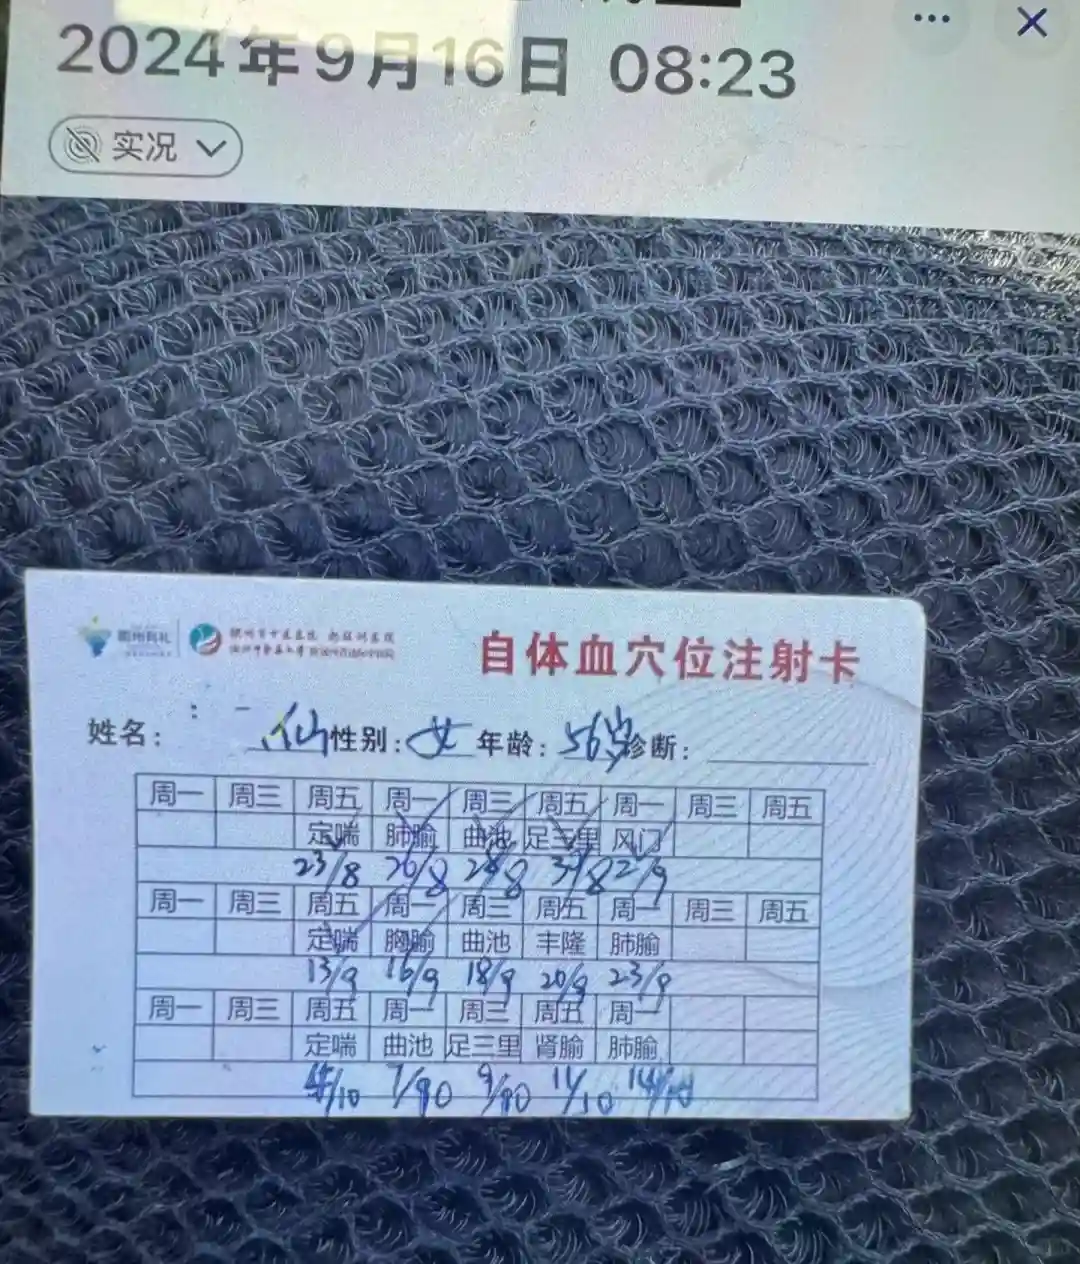 2024年9月16日 08:23
实况
衢州有礼
自体血穴位注射卡
姓名： 仙 性别：女 年龄：56岁 诊断：
周一 周三 周五 周一 周三 周五 周一 周三 周五
定喘 肺腧 曲池 足三里 风门
23/8 26/8 28/8 31/8 2/9
周一 周三 周五 周一 周三 周五 周一 周三 周五
定喘 胸腧 曲池 丰隆 肺腧
13/9 16/9 18/9 20/9 23/9
周一 周三 周五 周一 周三 周五 周一
定喘 曲池 足三里 肾腧 肺腧
/10 7/10 9/10 11/10 14/10